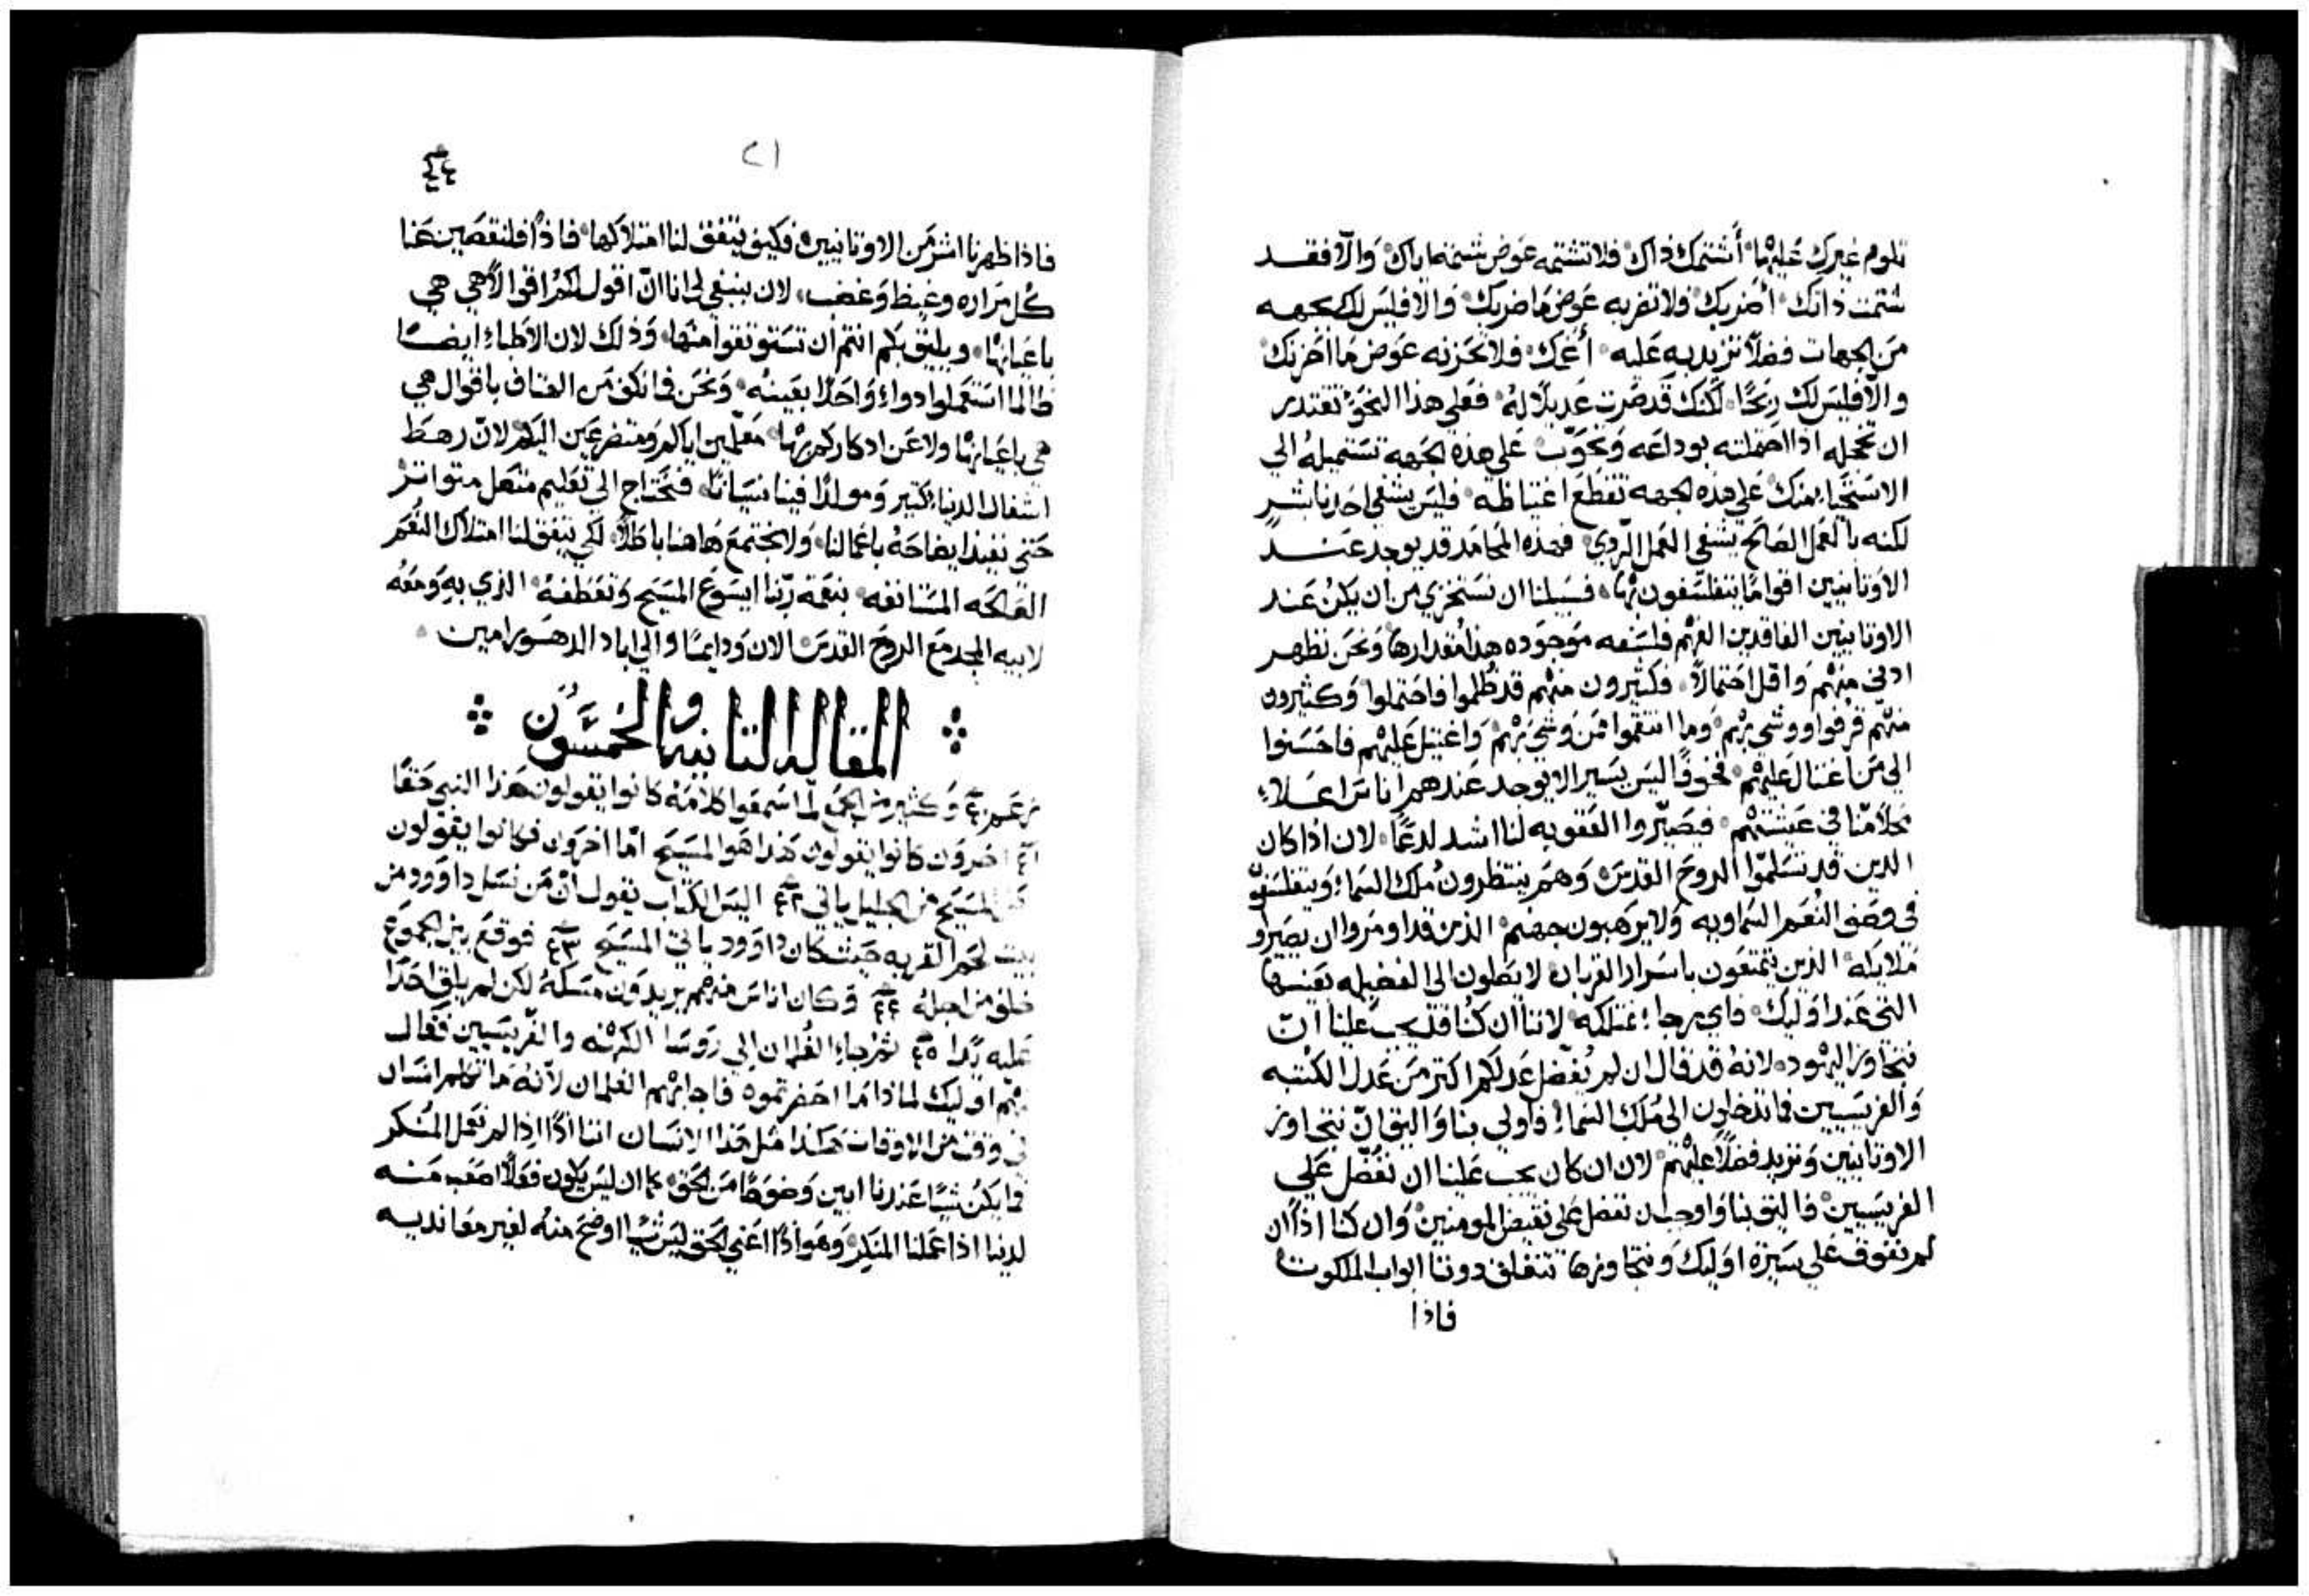 تلوم غيرك عليها أشتمك ذاك فلا تشتمه عوض شتمته اياك وَالّا فقد
شتمت ذاتك أضربك فلا تضربه عوض ما ضربك وَالا فليس لك بجهه
من الجهات فضلاً تزيد به عليه أغمك فلا تحزنه عوض ما احزنك
والّا فليس لك ربحًا لكنك قد صرت عديلاً له فعلي هذا النحو تقتدر
ان تخجله اذا احتملته بوداعه وَ علي هذه الجهه تستميله الي
الاستحياء منك علي هذه الجهه تقطع اغتياظه فليس يشفي احدنا بشرٍ
لكنه بالعمل الصالح يشفي العمل الردي فهذه المحامد قد يوجد عند
الاوثانيين اقوامًا يتفلسفون بها فسبيلنا ان نستخزي من ان يكن عند
الاوثانيين الفاقدين الفهم فلسفه موجوده هذا مقدارها وَنحن نظهر
ادني منهم وَاقل احتمالاً فكثيرون منهم قد ظلموا فاحتملوا وَكثيرون
منهم قرفوا ووشي بهم وَما انتقموا ممن وَشي بهم وَاغتيل عليهم فاحسنوا
الي من اغتال عليهم فخوفًا ليس يسير الا يوجد عندهم اناسَ اعلا
محلاً منّا في عيشتهم فيصيّروا العقوبه لنا اشد لدغًا لان اذا كان
الدين قد تسلموا الروح القدس وَهم ينتظرون ملك السما وَيتفلسفون
في وصف النعم السماويه وَلا يرهبون جهنم الذين قد اومروا ان يصيروا
ملايكه الذين يتمتعون باسرار القربان لا يصلون الي الفضيله نفسها
التي عند اوليك فاي رجا نمتلكه لاننا ان كنا قد يجب علينا ان
نتجاوز اليهود لانهُ قد قال ان لم يفضل عدلكم اكتر من عدل الكتبه
وَالفريسيين فما تدخلون الي ملك السما فاولي بنا وَاليق ان نتجاوز
الاوثانيين وَنزيد فضلاً عليهم لان ان كان يجب علينا ان نفضل علي
الفريسيين فاليق بنا وَاوجب ان نفضل علي نقيض المومنين وَان كنا اذاً ان
لم نفوق علي سيرة اوليك وَنتجاوزها تنغلق دوننا ابواب الملكوت
فاذا
٢١
فاذا ظهرنا اشرّ من الاوثانيين فكيف يتفق لنا امتلاكها فاذًا فلنقصين عنا
كل مراره وغيظ وَغضب لان ينبغي لي انا انّ اقول لكم اقوالاً هي هي
باعيانها ويليق بكم انتم ان تستوثقوا منها وَذلك لان الاطباء ايضًا
طالما استعملوا دواءً وَاحدًا بعينه وَنحن فما نكف من الهتاف باقوال هي
هي باعيانها ولا عن ادكاركم بها معلّمين اياكم ومتضرعين اليكم لانّ رهط
اشغال الدنيا كثير وَمولدًا فينا نسيانًا فنحتاج الي تعليم متصل متواتر
حتي نفيد ايضاحهُ باعمالنا وَلا نجتمع هاهنا باطلاً لكي يتفق لنا امتلاك النعم
الصالحه المستانفه بنعمة ربّنا ايسوع المسيح وَتعطفهُ الذي به وَمعه
لابيه المجد مع الروح القدس الان وَدايمًا والي اباد الدهور امين
المقاله الثانيه والخمسون
وَكثير من الجمع لما سمعوا كلامهُ كانوا يقولون هذا النبي حقًا
اخرون كانوا يقولون هذا هو المسيح امّا اخرون فكانوا يقولون
المسيح من الجليل ياتي ٤٢ اليس الكتاب يقول انّ من نسل داوود ومن
بيت لحم القريه حيث كان داوود ياتي المسيح ٤٣ فوقع بين الجموع
خلف من اجله ٤٤ وَكان اناس منهم يريدون مسكهُ لكن لم يلق احدًا
عليه يدًا ٤٥ ثم جاء الغلمان الي روسا الكهنه والفريسيين فقال
لهم اوليك لماذا ما احضرتموه فاجابهم الغلمان لانّهُ ما تكلم انسان
في وقت من الاوقات هكذا مثل هذا الانسان اننا اذًا اذا لم نعمل المنكر
فما يكن شيًا عندنا ابين وَضوحًا من الحق كما ان ليس يكون فعلاً اصعب منه
لدينا اذا عملنا المنكر وَهو اذًا اعني الحق ليس شيًا اوضح منهُ لغير معانديه